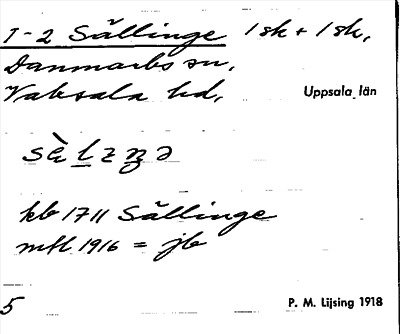 1-2 Sällinge 1 sk + 1 sk,
Danmarks sn,
Vaksala hd,
Uppsala län
kb 1711 Sällinge
mtl 1916 = jb
5
P. M. Lijsing 1918